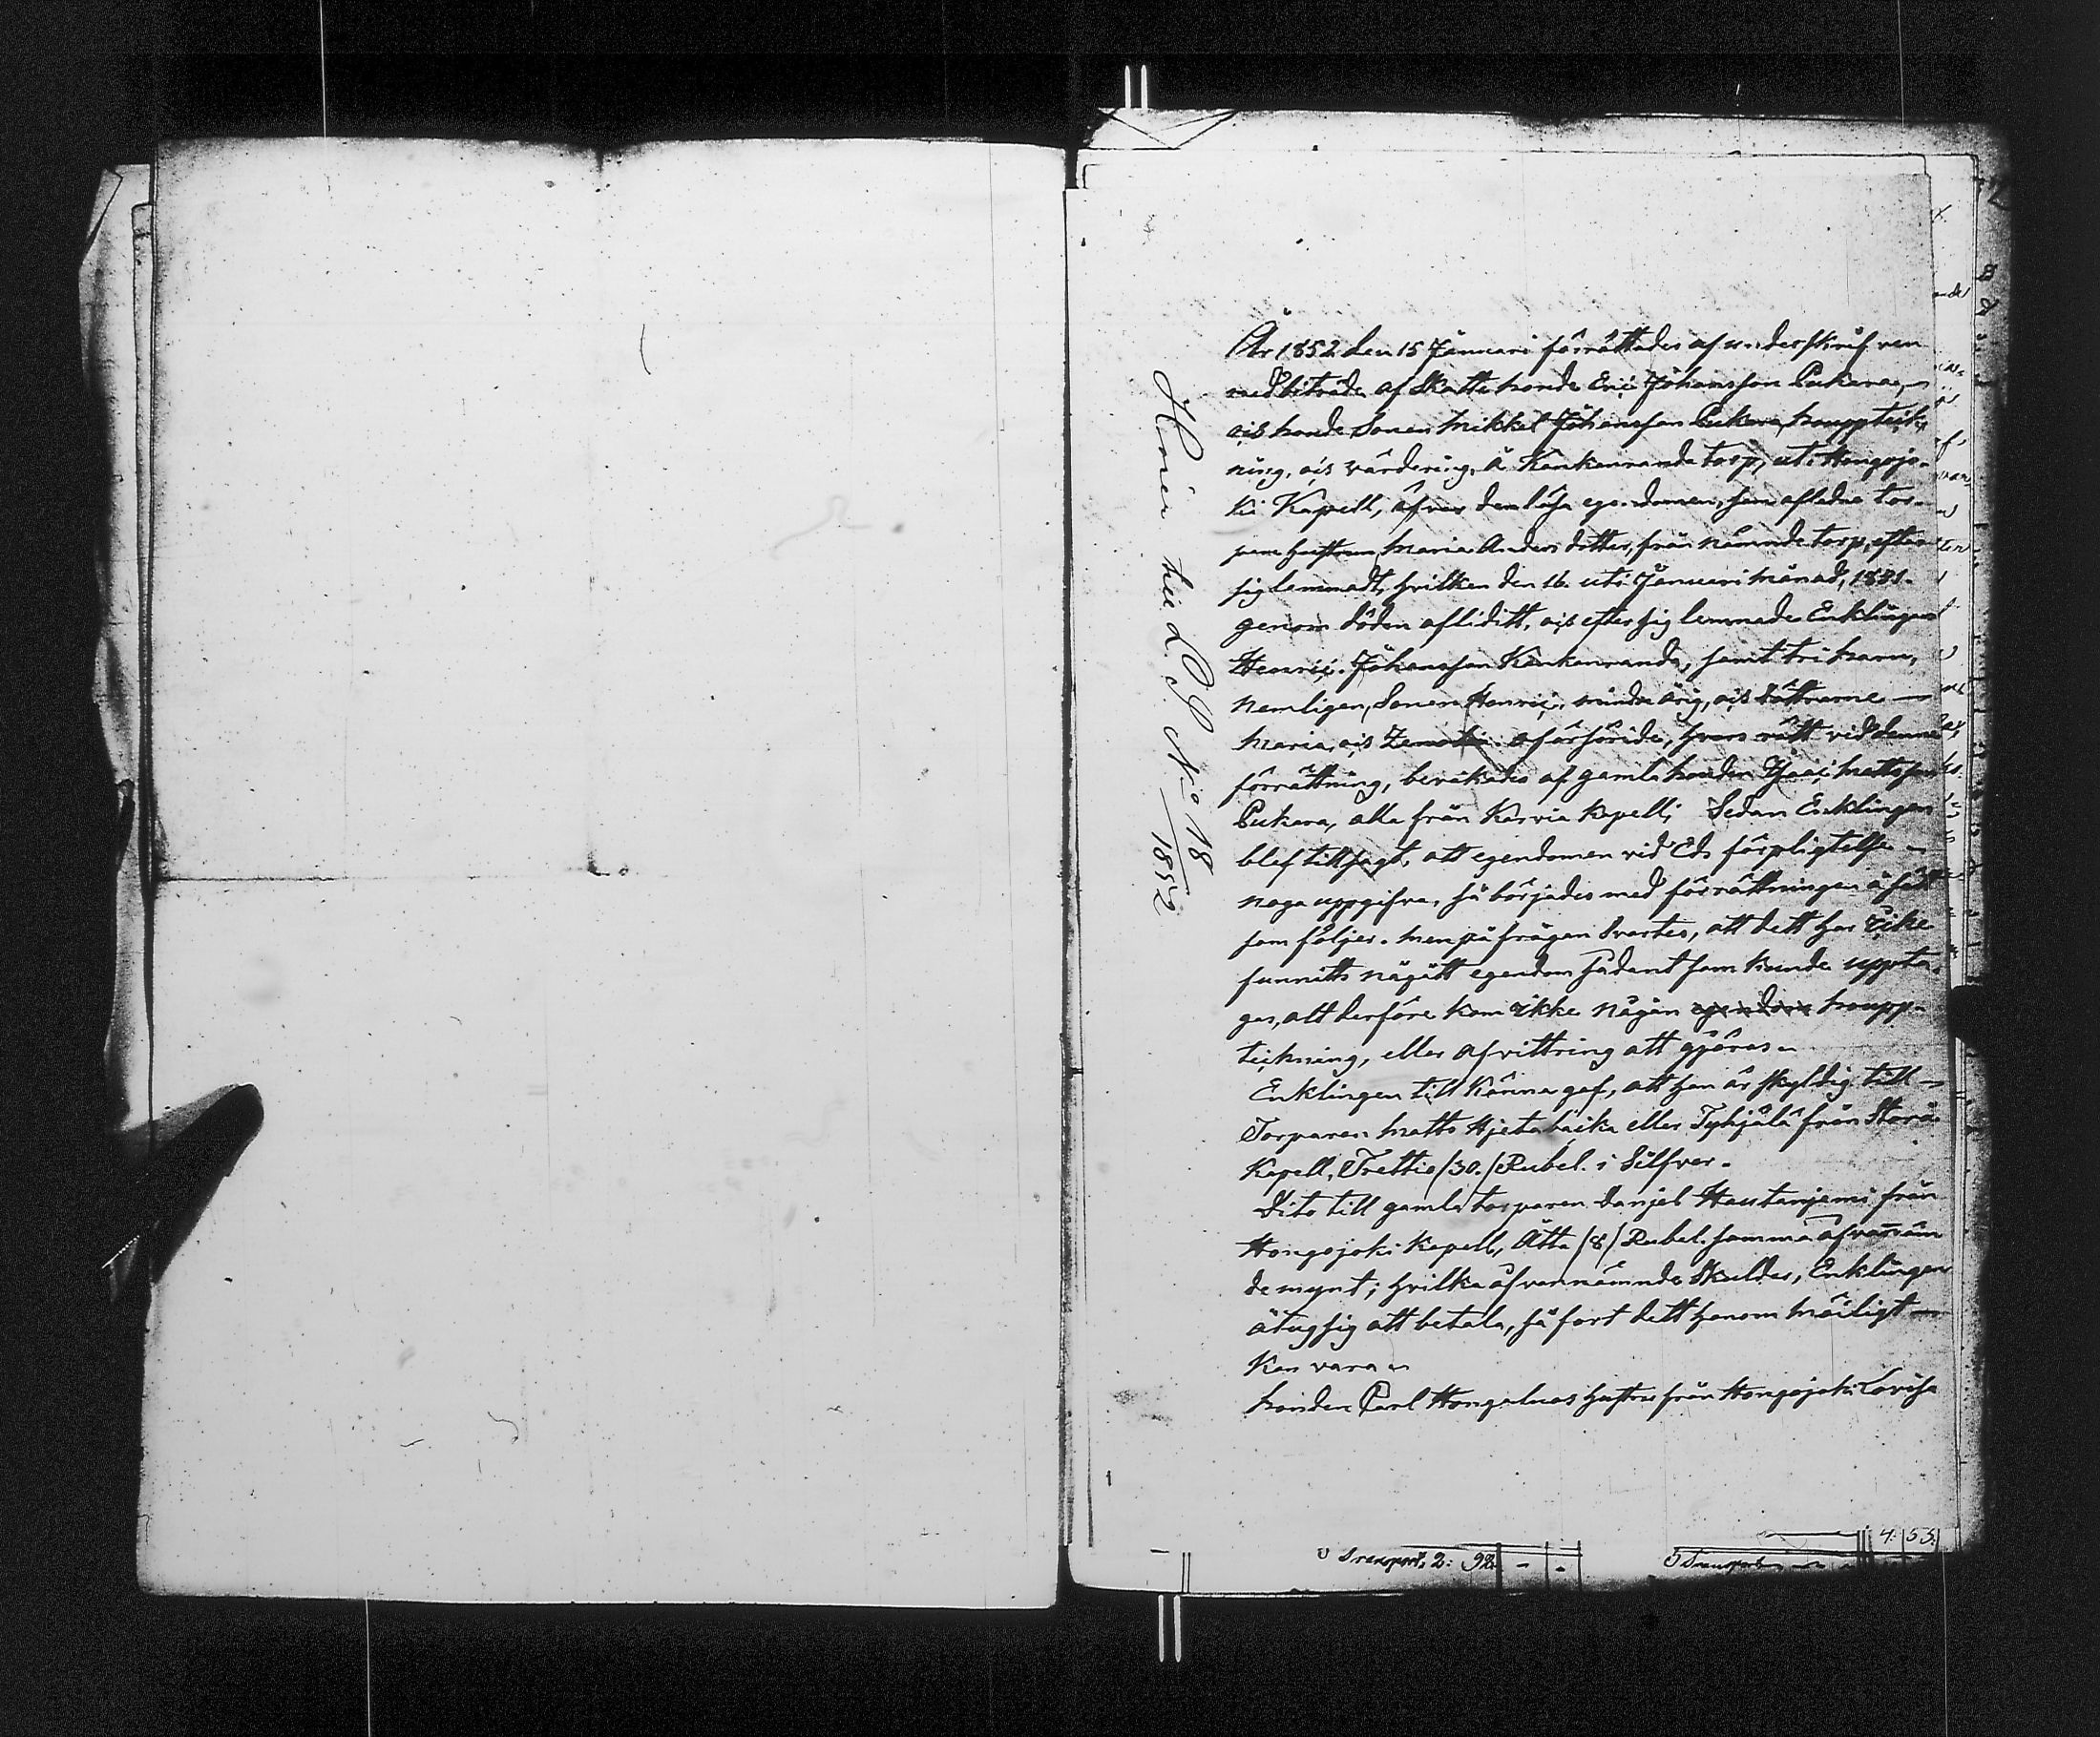 År 1852 den 15 Januari förrättades af underskrifven
med biträde af Skatte bonde Eric Johansson Pukara,
och bonde Sonen Mikkel Johansson Pukara, boupptek-
ning, och värdering, å Kankaanranda torp, uti Hongojo-
ki Kapell, öfver den lösa egendomen, som afledne tor-
pare hustrun, Maria Anders dotter, från nämnde torp, efter
sig lemnadt, hvilken den 16. uti Januari månad, 1851.
genom döden afliditt, och efter sig lemnade Enklingen
Henric. Johansson Kankaanranda, samt tri barn,
nemligen, Sonen Henric. minderårig, och döttrarne —
Maria, och oförsörjde, hvars rätt vid denne
förrättning, bevakades af gamla bonden Matts son
Pukara, alla från Karvia kapell; Sedan Enklingen
blef tillsagt, att egendomen vid Eds förpligtelse –
noga uppgifva, så börjades med förrättningen å sätt
som följer. men på frågan Svartes, att dett har icke
funnitts någått egendom sådant som kunde uppta-
gas, att derföre kom ikke någån egendom boupp-
teckning, eller afvittring att gjöras.
Enklingen till känna gaf, att han är skyldig till –
Torparen Matts Hjetabaika eller Tyhjälä från Storå
Kapell, Trettio /30./ Rubel. i Silfver.
Dito till gamla torparen Danjel Hautanjemi från
Hongojoki Kapell, Åtta /8/ Rubel. samma åfvannäm
de mynt; hvilka åfvannämnde Skulder, Enklingen
åtug sig att betala, så fort dett honom möiligt —
kan vara.
bonden Carl Hongoluas hustru från Hongojoki Lovisa
N:o 18
1852
Transport, 2: 98. - -
4. 53.
Transport